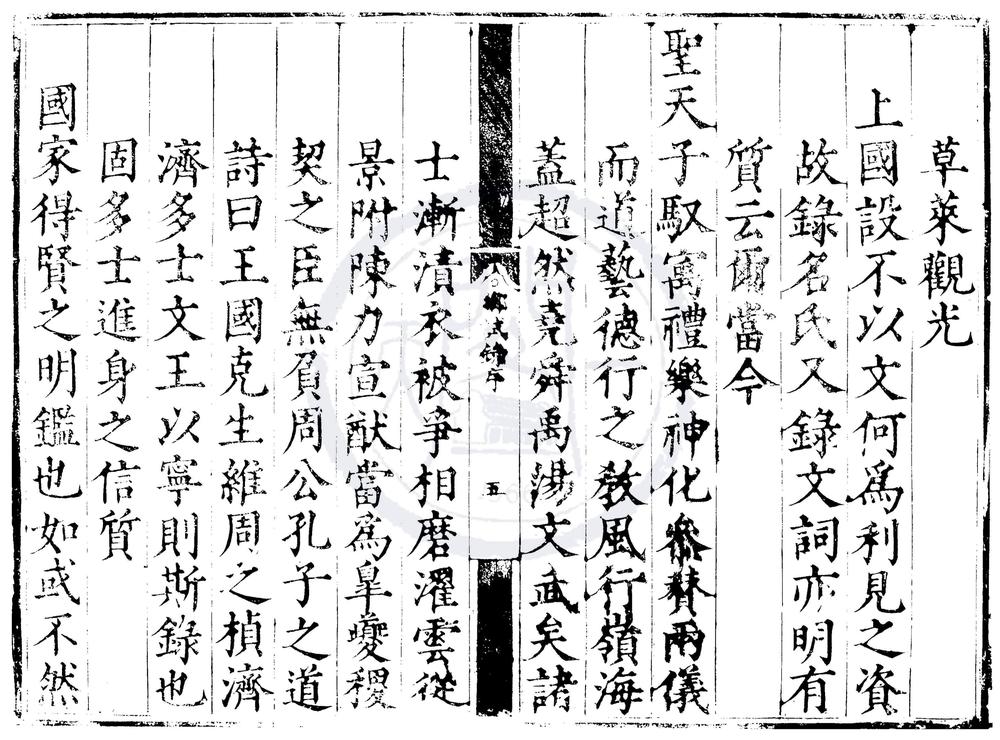 草萊觀光
上國設不以文何爲利見之資
故錄名氏又錄文詞亦明有
質云爾當今
聖天子馭寓禮樂神化參賛兩儀
而道藝德行之敎風行嶺海
蓋超然堯舜禹湯文武矣諸
鄉試錄序
五
士漸漬衣被爭相磨濯雲從
景附陳力宣猷當爲臯夔稷
契之臣無負周公孔子之道
詩曰王國克生維周之楨濟
濟多士文王以寧則斯錄也
固多士進身之信質
國家得賢之明鑑也如或不然